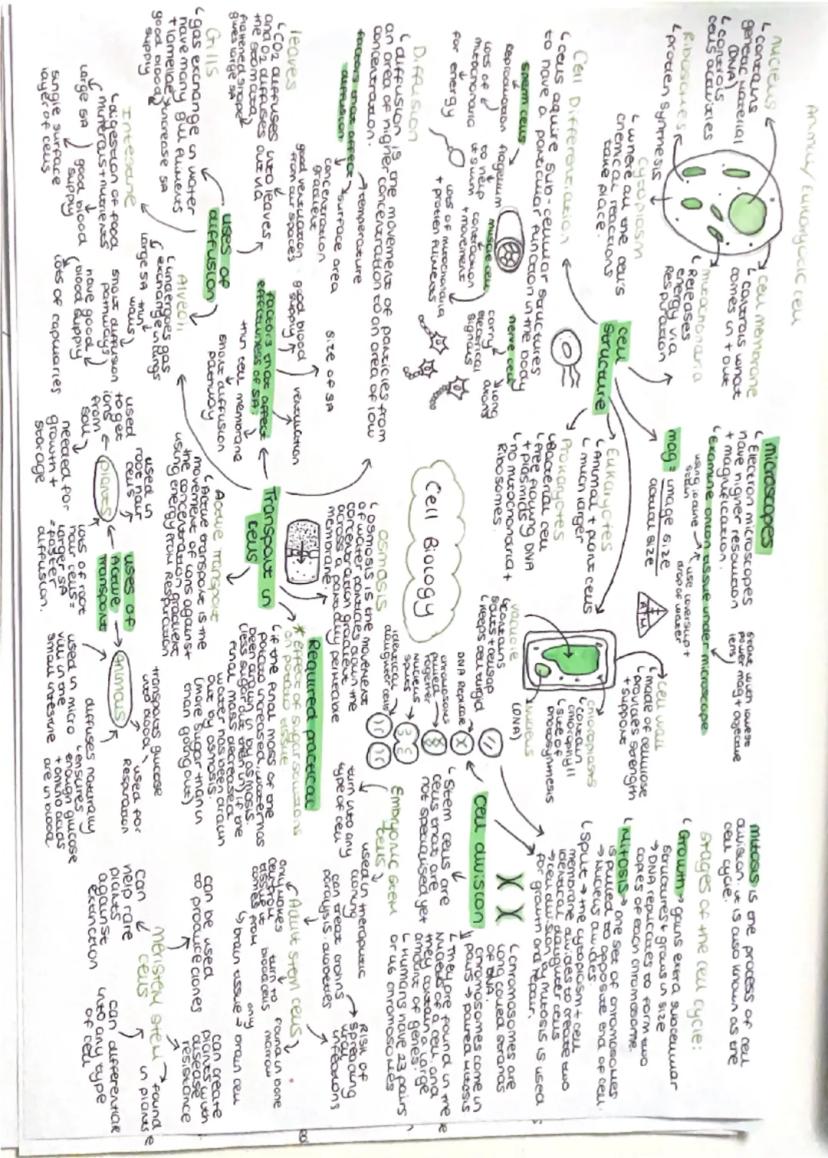 Animal Eukaryotic cell
nucleus
↳ contains
genetic material
(DNA)
↳ controls
cells activities
Ribosomes
↳ protein synthesis
cytoplasm
↳ where all the cell's
chemical reactions
take place.
cell membrane
↳ controls what
comes in + out
mitochondria
↳ Releases
energy via
Respiration
cell
structure
Cell Differentiation
↳ cells aquire sub-cellular structures
to have a particular function in the body
sperm cells
Reproduction
lots of
mitochondria
for energy
flagellum
to help
it swim
muscle cell
contraction
+ movement
lots of mitochondria
+ protein filaments
nerve cell
carry
electrical
signals
long
axons
Diffusion
↳ diffusion is the movement of particles from
an area of higher concentration to an area of low
concentration.
factors that affect
diffusion
→ temperature
surface area
concentration
gradient
leaves
↳ CO2 diffuses into leaves
and O2 diffuses out via
the stomata
flattened shape
gives large SA
good ventilation
from air spaces
Gills
↳ gas exchange in water
have many gill filaments
+ lamellae → increase SA
good blood
supply
uses of
diffusion
Intestine
↳ digestion of food
nutrients
large SA
good blood
supply
single surface
layer of cells
Alveoli
↳ undergoes gas
exchange in lungs
large SA
thin
walls
small diffusion
pathways
have good
blood supply
lots of capillaries
factors that affect
effectiveness of SA:
size of SA
good blood
supply
ventilation
thin cell membrane
small diffusion
pathway
microscopes
↳ Electron microscopes
have higher resolution
+ magnification.
↳ Examine onion tissue under microscope
using iodine
stain
use coverslip +
drop of water
start with lowest
power mag + objective
lens
mag = image size
actual size
I
A M
Eukaryotes
↳ Animal + plant cells
↳ much larger
Prokaryotes
↳ Bacterial cell
↳ free flowing DNA
+ plasmids
↳ no mitochondria +
Ribosomes.
cell wall
↳ made of cellulose
↳ provides strength
+ support
chloroplasts
↳ contain
chlorophyll
↳ site of
photosynthesis
vacuole
↳ contains
salts + cell sap
↳ keeps cell turgid
nucleus
(DNA)
Cell Biology
osmosis
↳ osmosis is the movement
of water particles down the
concentration gradient
across a partially permeable
membrane.
Transport in
cells
Active Transport
↳ Active transport is the
movement of ions against
the concentration gradient
using energy from Respiration
Required practical
* effect of sugar solutions
on potato tissue
↳ if the final mass of the
potato increased, water has
been drawn in by osmosis.
(less sugar than in) if the
final mass decreased
water has been drawn
out by osmosis
(more sugar than in
than going out)
uses of
Active
transport
plants
used in
root hair
cells
used
to get
ions
from
soil
needed for
growth +
storage
lots of root
hair cells =
larger SA
= faster
diffusion.
Animals
transports glucose
into blood
used for
Respiration
used in micro
villi in the
small intestine
diffuses naturally
↳ ensures
enough glucose
+ amino acids
are in blood
DNA Replicate
chromosomes
paired
together
nucleus
splits
identical
daughter cells
mitosis is the process of cell
division. it is also known as the
cell cycle.
stages of the cell cycle:
↳ Growth → gains extra subcellular
structures + grows in size
→ DNA replicates to form two
copies of each chromosome.
↳ Mitosis → one set of chromosomes
is pulled to opposite end of cell.
→ Nucleus divides
↳ split → the cytoplasm + cell
membrane divides to create two
identical daughter cells
→ cell division by mitosis is used
for growth and repair.
cell division
↳ chromosomes are
long coiled strands
of DNA.
chromosomes come in
pairs →
↳ They are found in the
nucleus of a cell and
they contain a large
amount of genes.
↳ Humans have 23 pairs
or 46 chromosomes
↳ Stem cells are
cells that are
not specialised yet
Embryonic stem
cells
turn into any
type of cell
used in therapeutic
cloning
can treat
paralysis diabetes
Risk of
spreading
viral
infections
Adult stem cells
found in bone
marrow
turn to
blood cells
only makes
cell from
tissue it
comes from
↳ brain tissue → brain cell
meristem stem
cells
found
in plants
can differentiate
into any type
of cell
can be used
to produce clones
can
help rare
plants
against
extinction
can create
plants with
disease
resistance